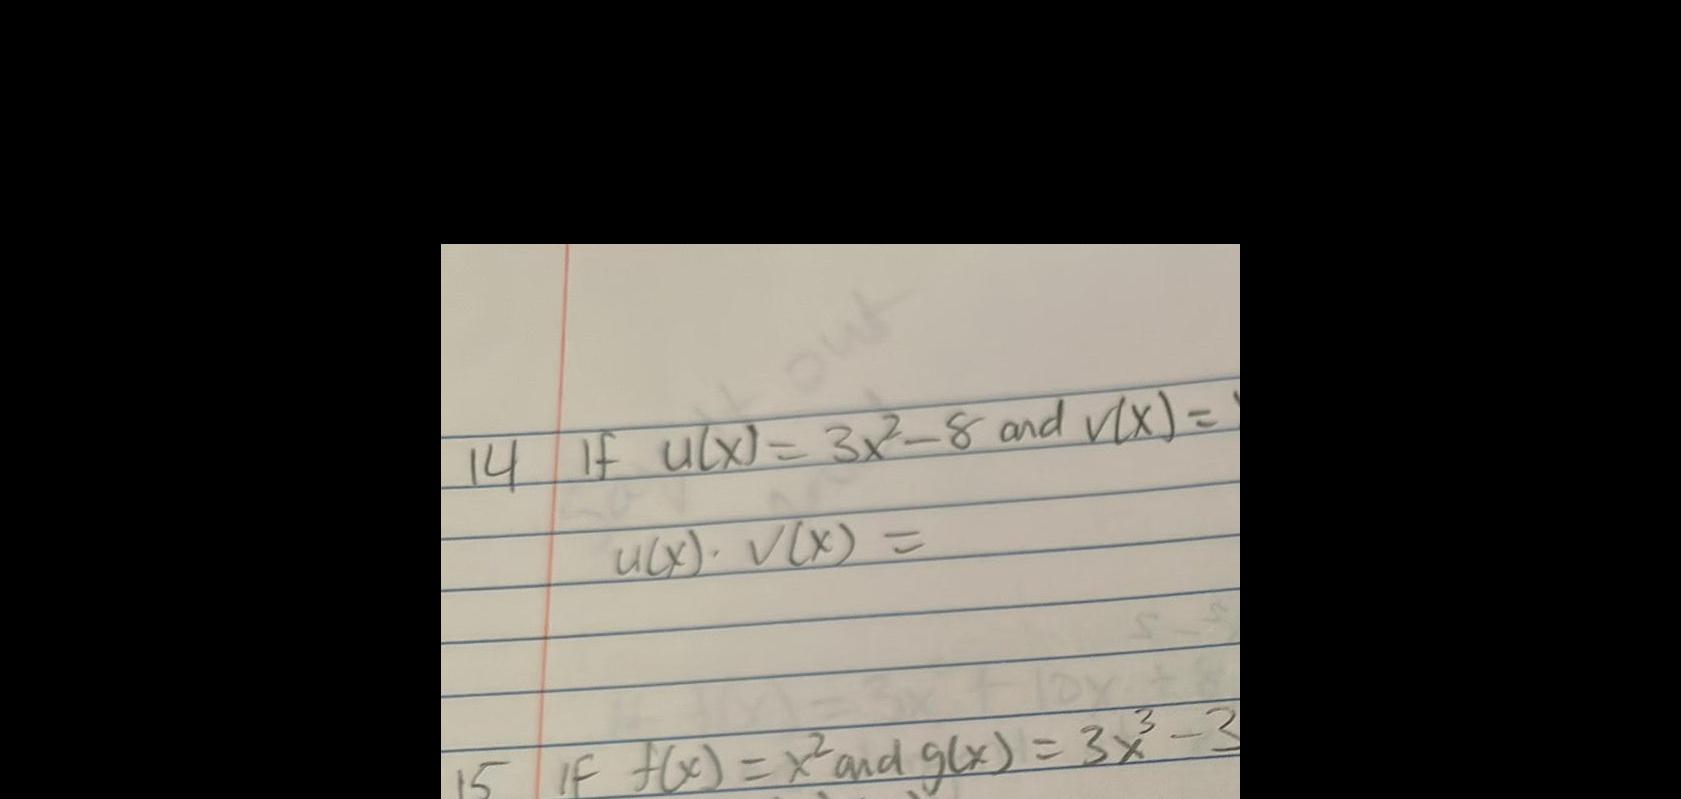 14 If u(x) = 3x² - 8 and v(x) =
u(x) · v(x) =
15 If f(x) = x² and g(x) = 3x³ - 3